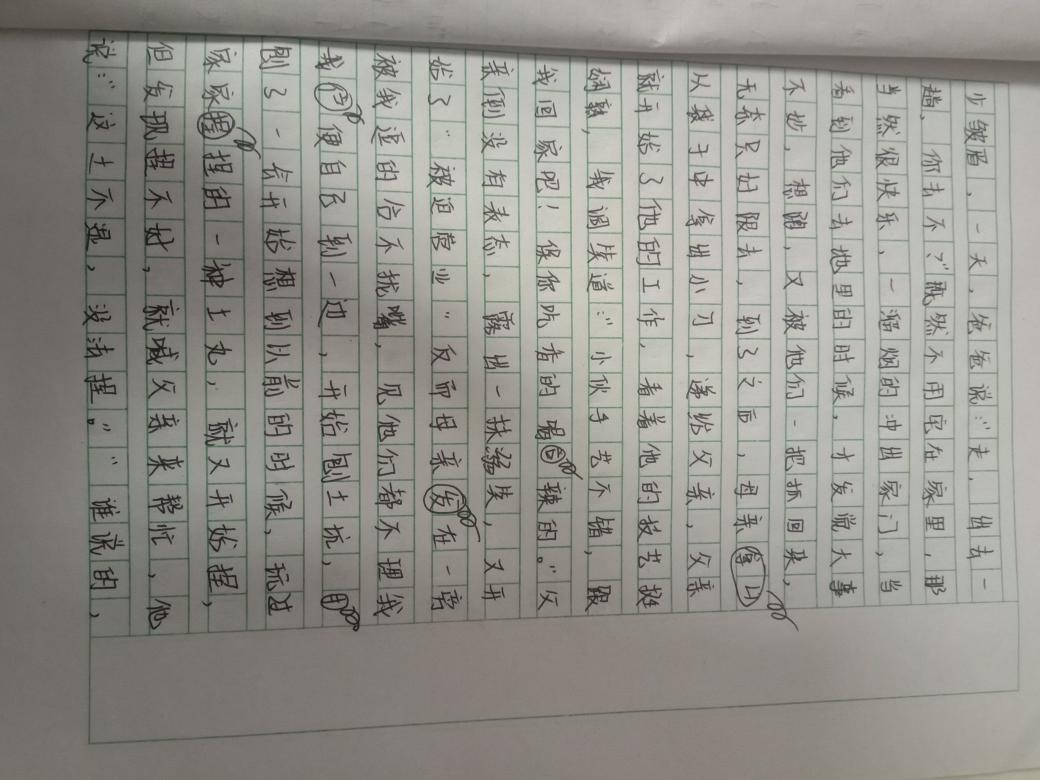 少皱眉，一天，爸爸说：“走，出去一
趟，你去不？”既然不用宅在家里，那
当然很快乐，一溜烟的冲出家门，当
看到他们去地里的时候，才发觉大事
不妙，想跑，又被他们一把抓回来，
无奈只好跟去，到了之后，母亲拿山
从袋子中拿出小刀，递给父亲，父亲
就开始了他的工作，看着他的技艺挺
娴熟，我调笑道：“小伙手艺不错，跟
我回家吧！保你吃香的喝回辣的。”父
亲倒没有表态，露出一抹笑，又开
始了“被迫营业”反而母亲发在一旁
被我逗的合不拢嘴，见他们都不理我
我便自己到一边，开始刨土坑，自
刨了一会开始想到以前的时候，玩过
家家捏捏的一种土丸，就又开始捏，
但发现捏不好，就喊父亲来帮忙，他
说：“这土不湿，没法捏。”“谁说的，